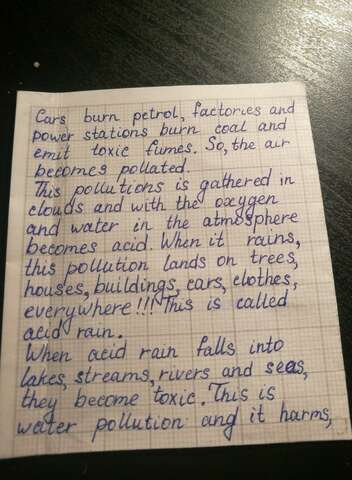 Cars burn petrol, factories and
power stations burn coal and
emit toxic fumes. So, the air
becomes pollated.
This pollutions is gathered in
clouds and with the oxygen
and water in the atmosphere
becomes acid. When it rains,
this pollution lands on trees,
houses, buildings, cars, clothes,
everywhere!!! This is called
acid rain.
When acid rain falls into
lakes, streams, rivers and seas,
they become toxic. This is
water pollution and it harms,